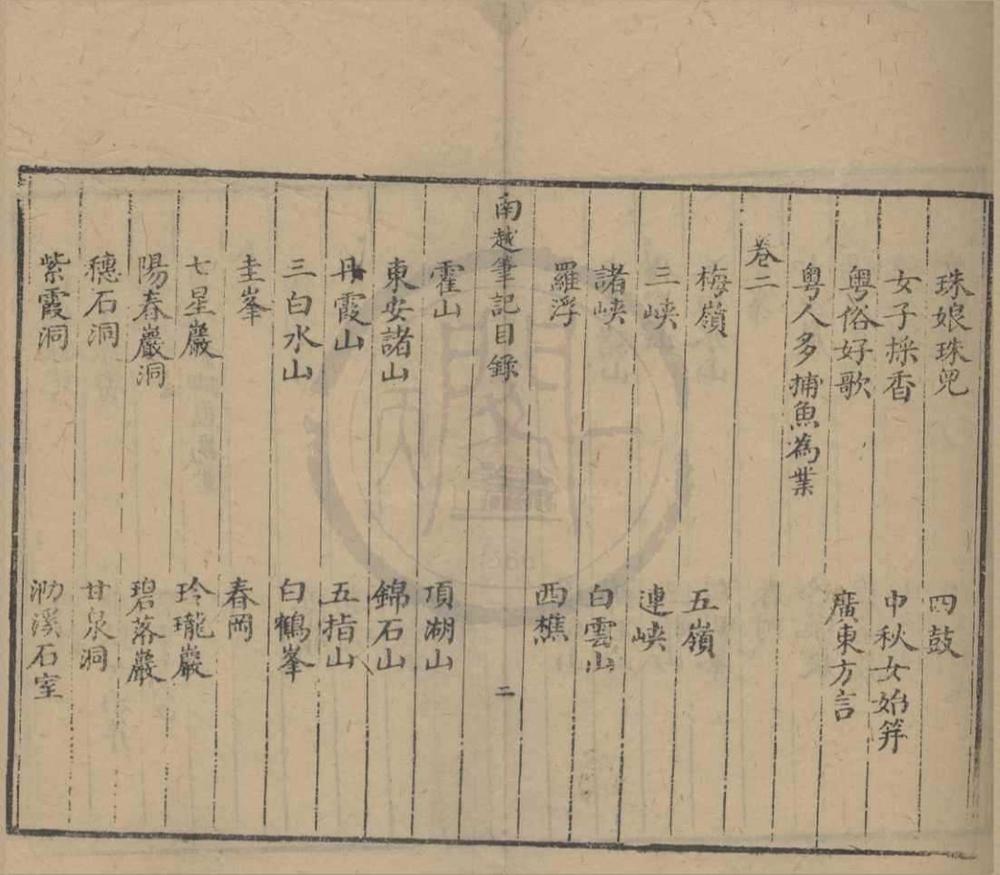 珠娘珠兒 四鼓
女子採香 中秋女始笄
粵俗好歌 廣東方言
粵人多捕魚為業
卷二
梅嶺 五嶺
三峽 連峽
諸峽 白雲山
羅浮 西樵
南越筆記目錄 二
霍山 頂湖山
東安諸山 錦石山
丹霞山 五指山
三白水山 白鶴峯
圭峯 春岡
七星巖 玲瓏巖
陽春巖洞 碧落巖
穗石洞 甘泉洞
紫霞洞 泐溪石室